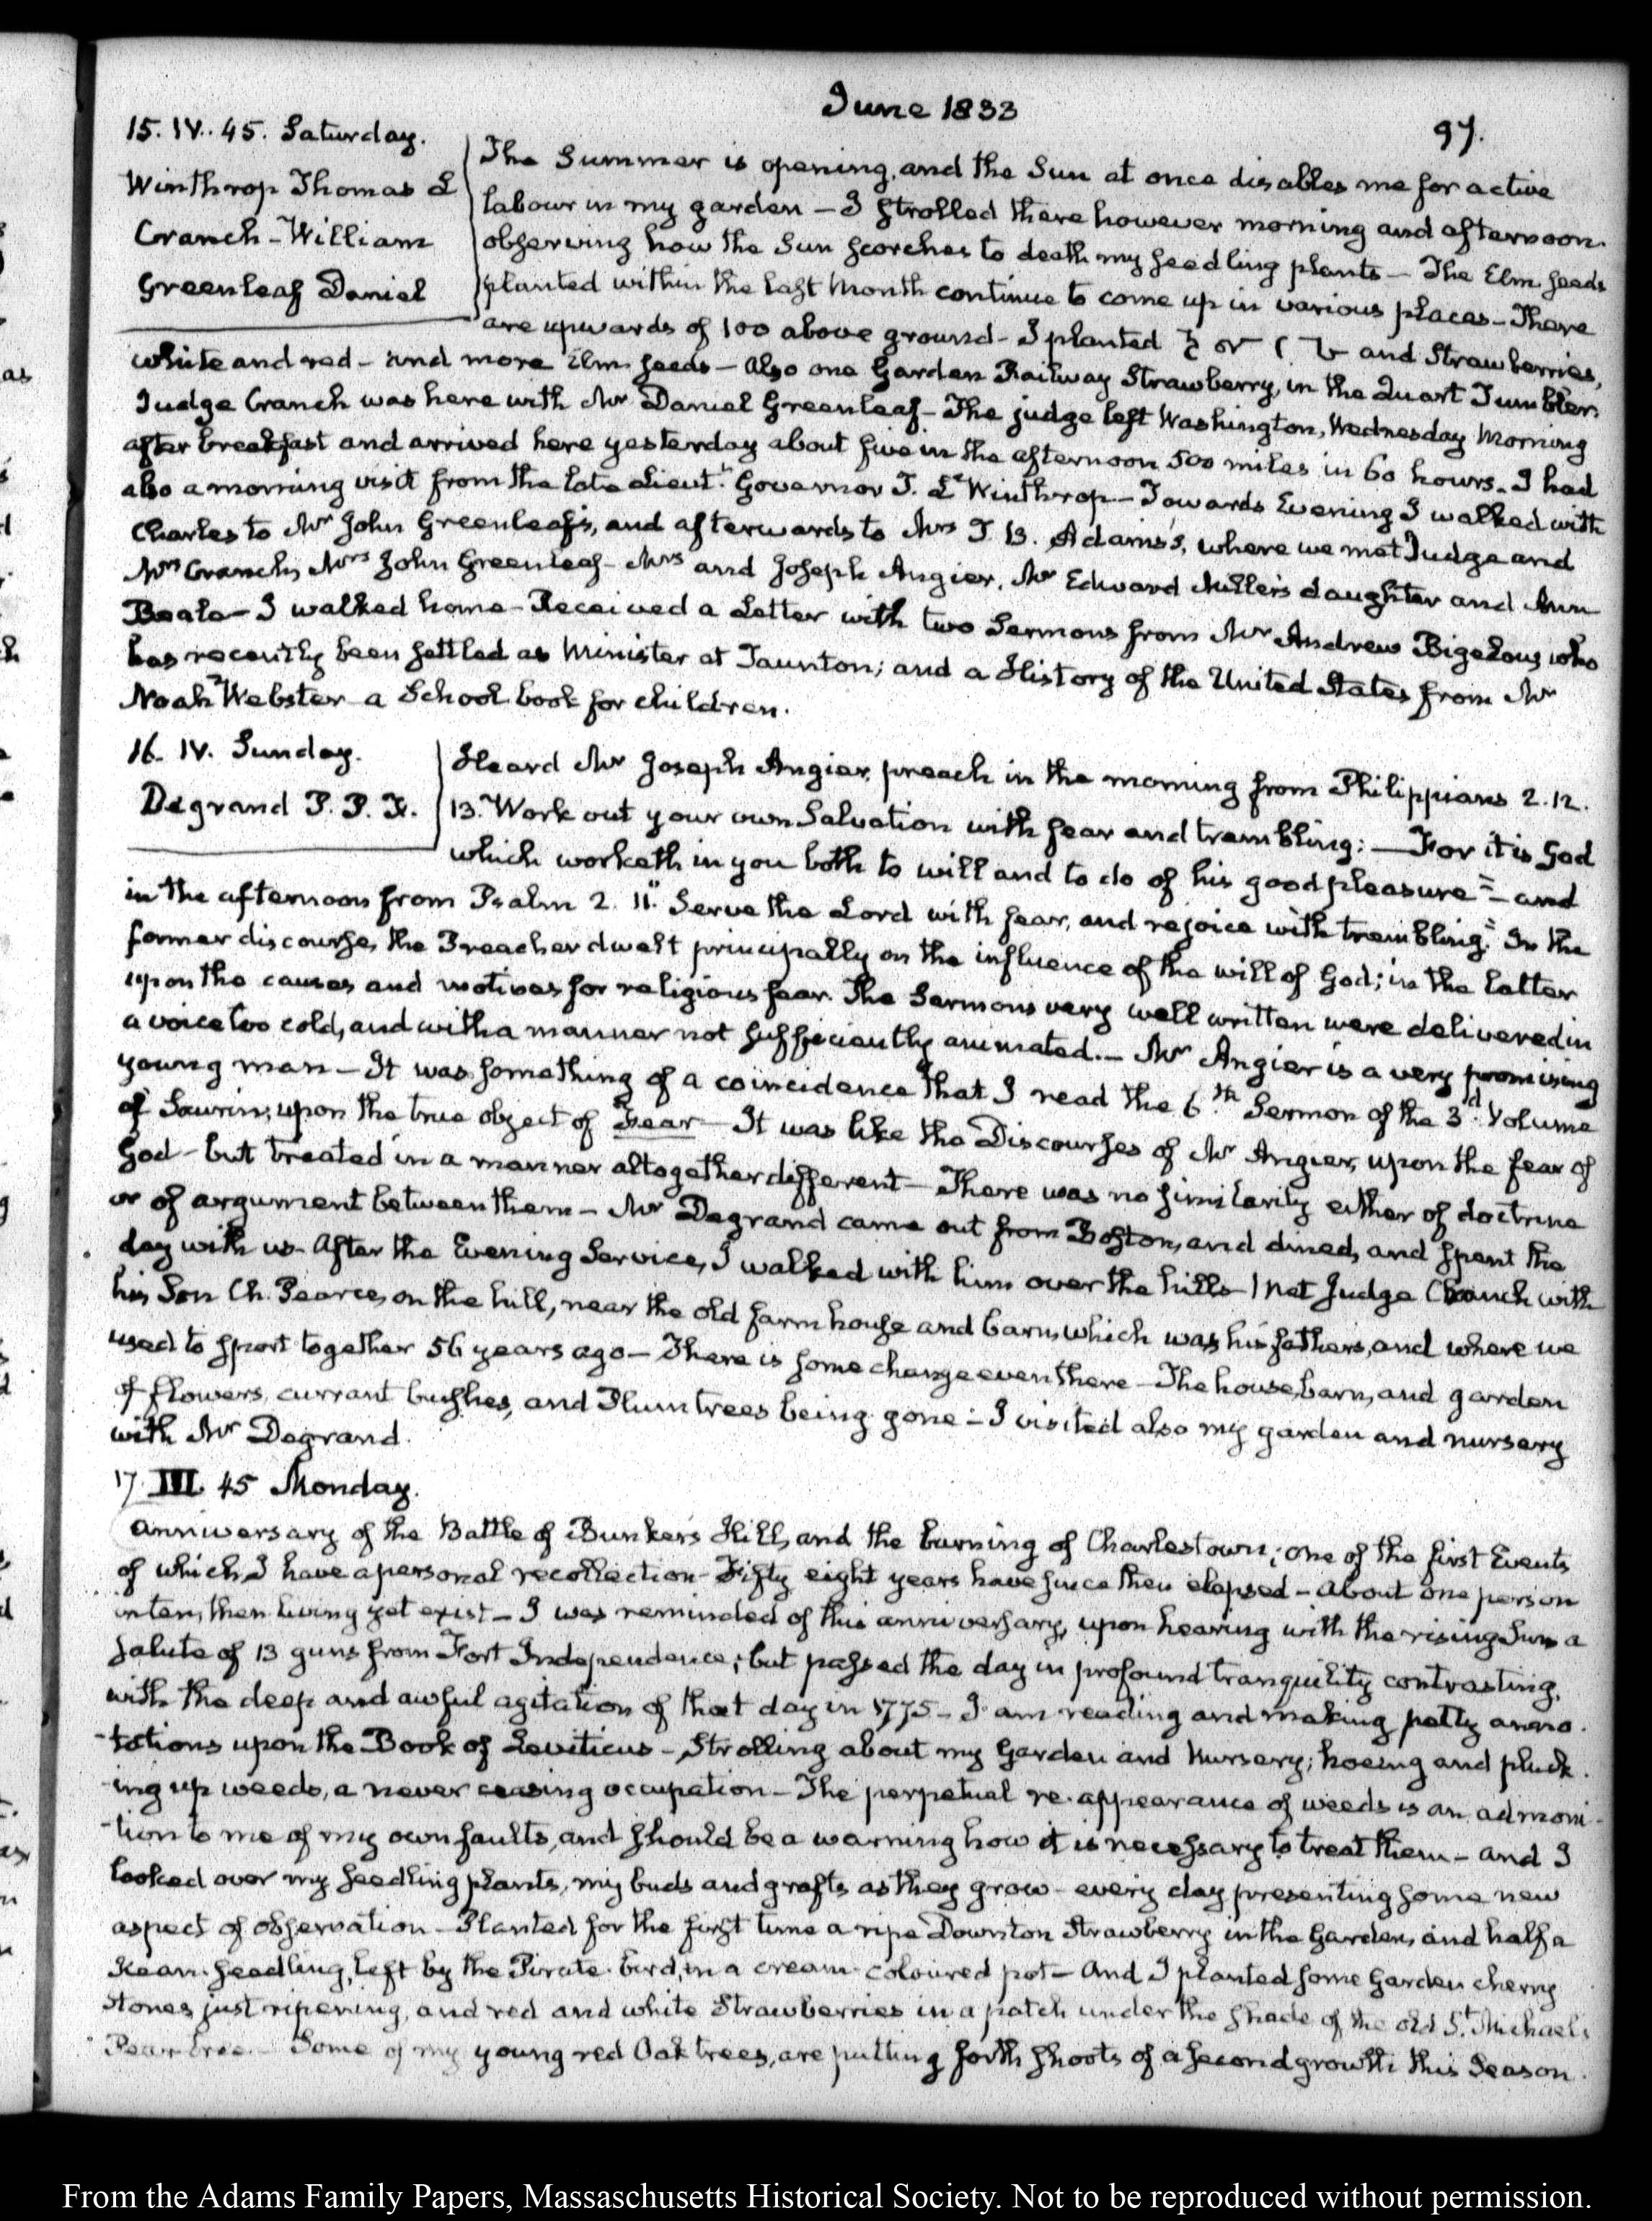 June 1833
97.
15. IV.. 45. Saturday.
Winthrop Thomas L
Cranch - William
Greenleaf Daniel
The Summer is opening, and the Sun at once disables me for active
labour in my garden — I strolled there however morning and afternoon.
observing how the Sun scorches to death my seedling plants — The Elm seeds
planted within the last Month continue to come up in various places — There
are upwards of 100 above ground - I planted and Strawberries,
white and red - and more Elm seeds — Also one Garden Railway Strawberry, in the Quart Tumbler.
Judge Cranch was here with Mr Daniel Greenleaf - The judge left Washington, Wednesday Morning
after breakfast and arrived here yesterday about five in the afternoon 500 miles in 60 hours. I had
also a morning visit from the late Lieutt. Governor T. L. Winthrop — Towards Evening I walked with
Charles to Mr John Greenleaf's, and afterwards to Mrs T. B. Adams's, where we met Judge and
Mrs Cranch, Mrs John Greenleaf - Mrs and Joseph Angier, Mr Edward Miller's daughter and Ann
Beale — I walked home - Received a Letter with two Sermons from Mr Andrew Bigelow, who
has recently been settled as Minister at Taunton; and a History of the United States from Mr
Noah Webster a School book for children.
16. IV. Sunday.
Degrand P. P. F.
Heard Mr Joseph Angier, preach in the morning from Philippians 2. 12.
13. "Work out your own Salvation with fear and trembling: — For it is God
which worketh in you both to will and to do of his good pleasure" — and
in the afternoon from Psalm 2. 11. "Serve the Lord with fear, and rejoice with trembling." In the
former discourse, the Preacher dwelt principally on the influence of the will of God; in the latter
upon the causes and motives for religious fear. The Sermons very well written were delivered in
a voice too cold, and with a manner not sufficiently animated. — Mr Angier is a very promising
young man — It was something of a coincidence that I read the 6th Sermon of the 3d Volume
of Saurin, upon the true object of Fear — It was like the Discourses of Mr Angier, upon the fear of
God - but treated in a manner altogether different — There was no similarity either of doctrine
or of argument between them — Mr Degrand came out from Boston, and dined, and spent the
day with us. After the Evening Service, I walked with him over the hills — met Judge Cranch with
his Son Ch. Pearce, on the hill, near the old farm house and barn, which was his father's, and where we
used to sport together 56 years ago — There is some change even there — The house, barn, and garden
of flowers, currant bushes, and Plum trees being gone — I visited also my garden and nursery
with Mr Degrand.
17. III. 45 Monday.
Anniversary of the Battle of Bunker's Hill, and the burning of Charlestown; one of the first Events
of which I have a personal recollection - Fifty eight years have since then elapsed — About one person
in ten, then living yet exist — I was reminded of this anniversary, upon hearing with the rising Sun a
salute of 13 guns from Fort Independence; but passed the day in profound tranquility contrasting,
with the deep and awful agitation of that day in 1775 — I am reading and making petty anno-
-tations upon the Book of Leviticus — Strolling about my Garden and Nursery; hoeing and pluck-
-ing up weeds, a never ceasing occupation — The perpetual re-appearance of weeds is an admoni-
-tion to me of my own faults, and should be a warning how it is necessary to treat them — and I
looked over my seedling plants, my buds and grafts as they grow - every day presenting some new
aspect of observation — Planted for the first time a ripe Downton Strawberry in the Garden, and half a
Kean seedling, left by the Pirate bird, in a cream coloured pot — And I planted some Garden cherry
stones just ripening, and red and white Strawberries in a patch under the shade of the old St. Michael's
Pear tree. — Some of my young red Oak trees, are putting forth shoots of a second growth this Season.
From the Adams Family Papers, Massachusetts Historical Society. Not to be reproduced without permission.